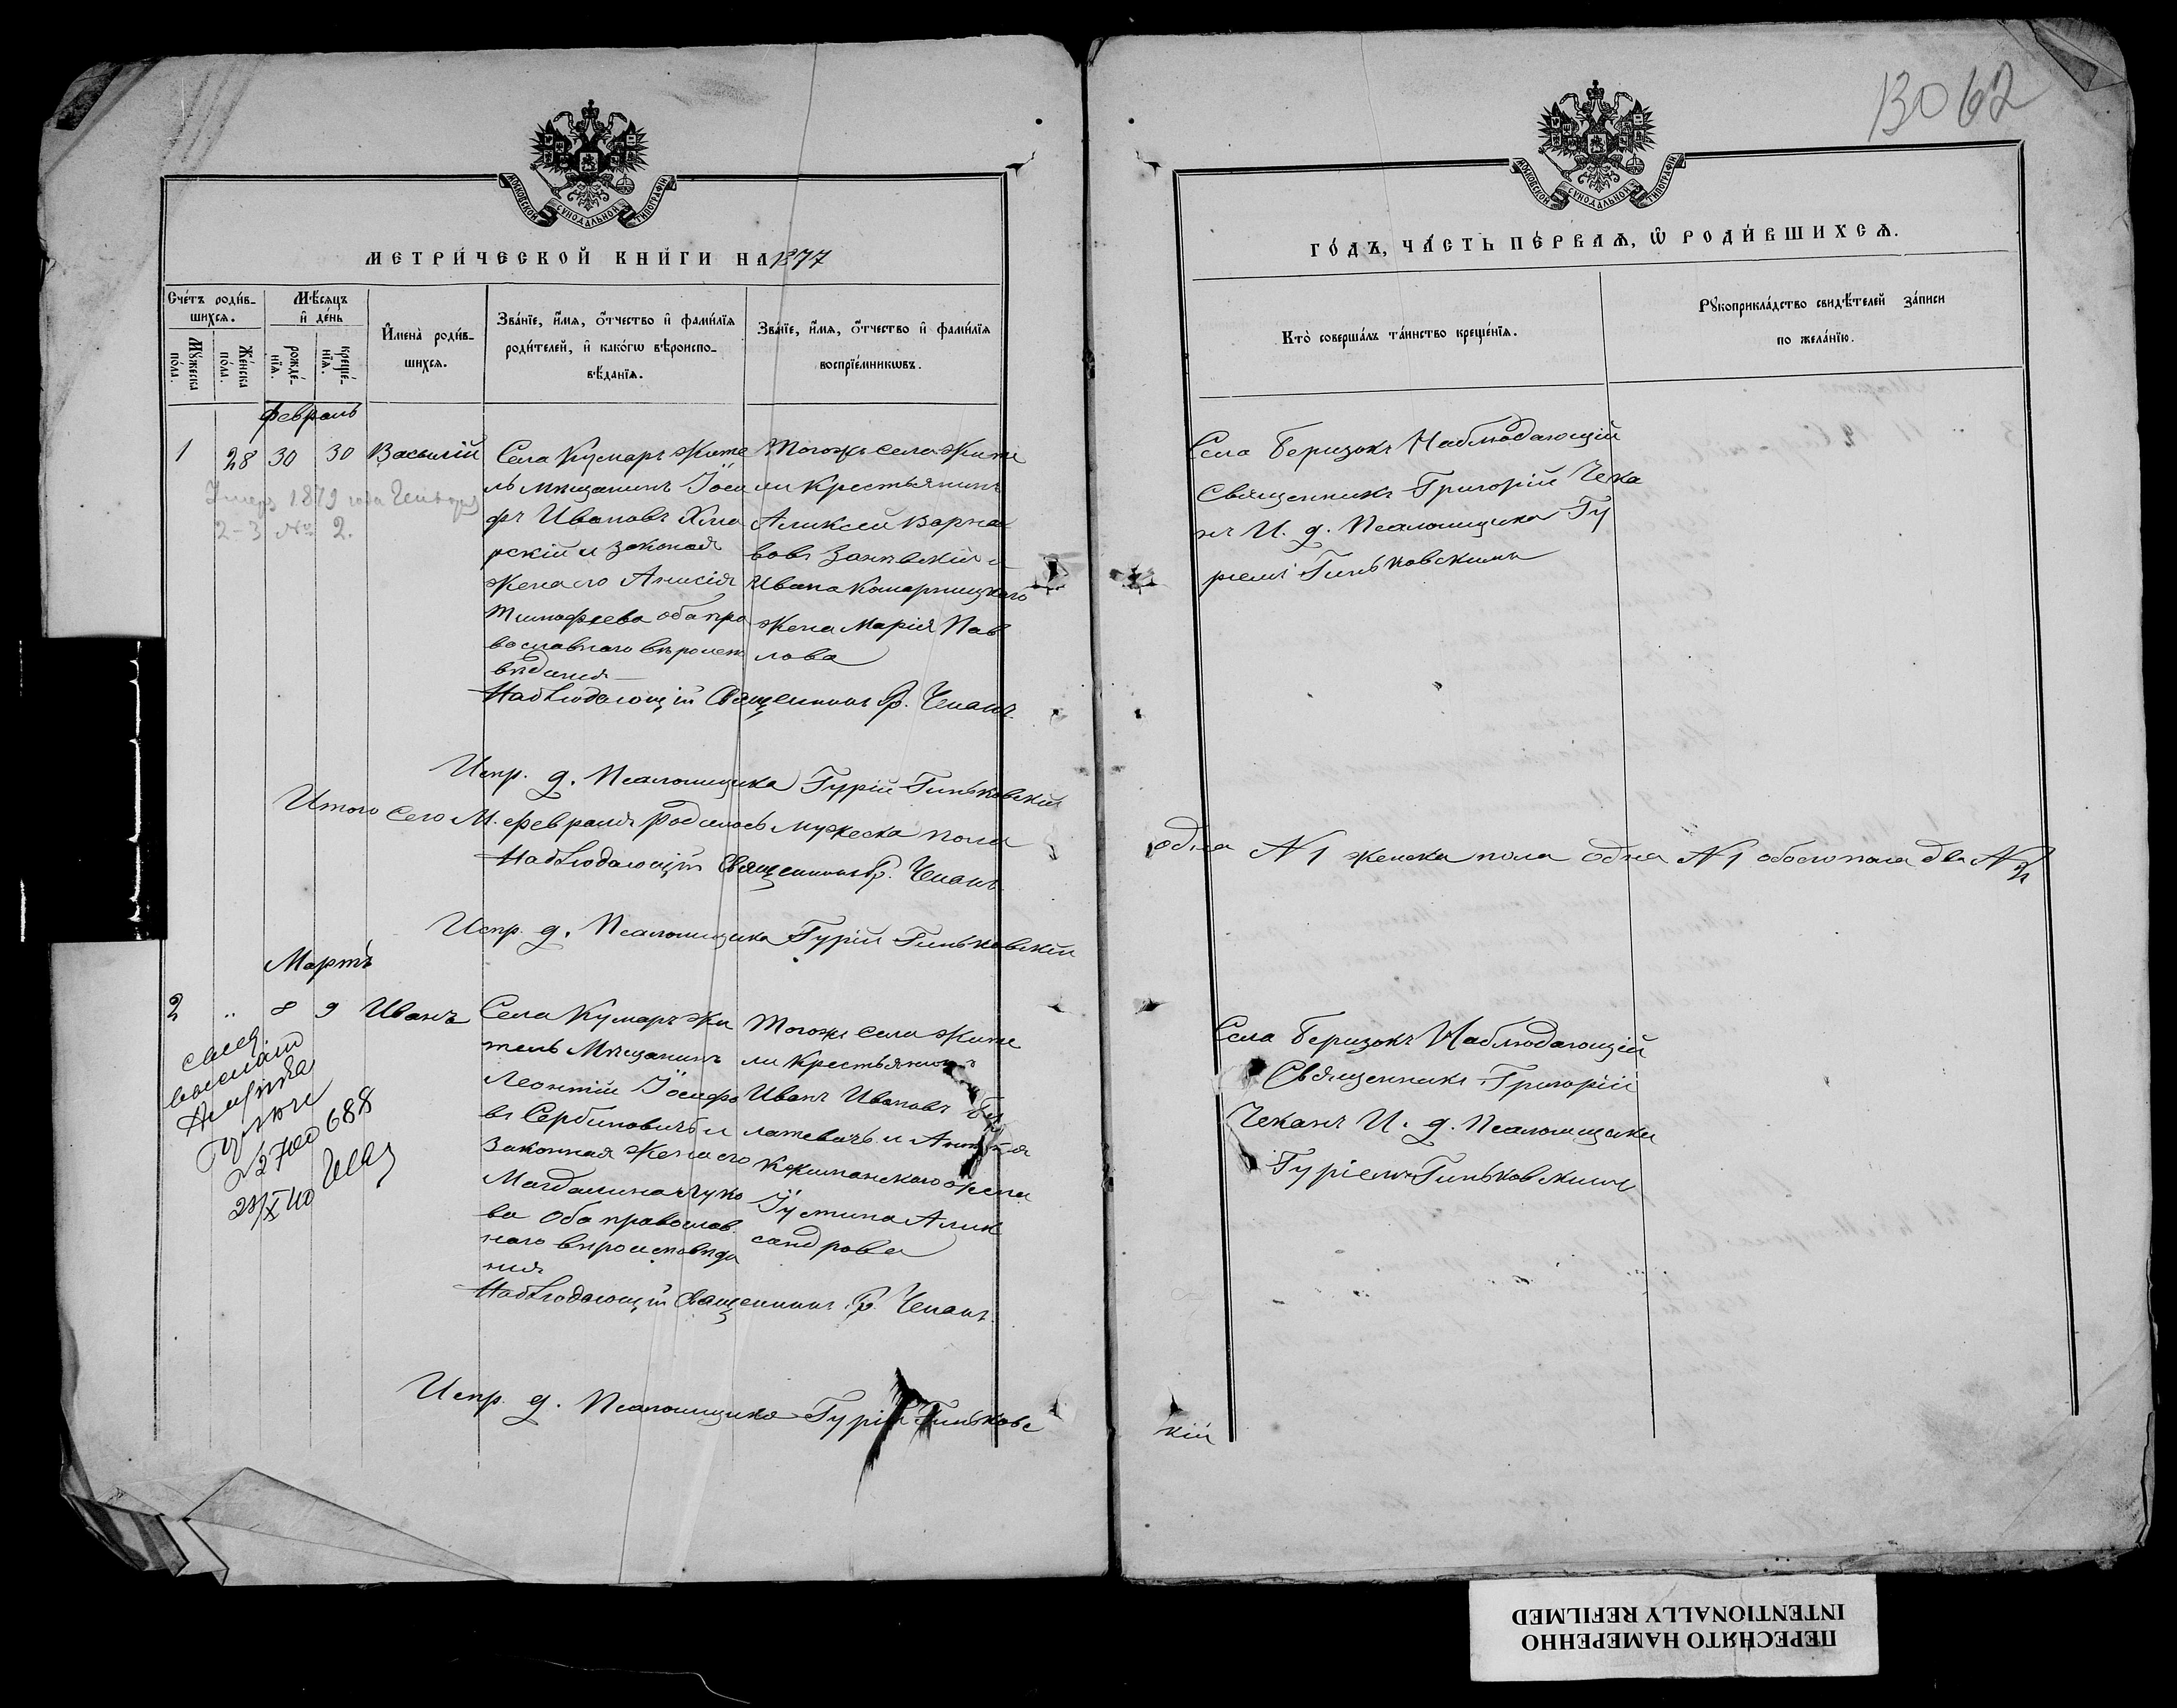 МОСКОВСКОЙ СУНОДАЛЬНОЙ ТИПОГРАФІИ
МЕТРИ́ЧЕСКОЙ КНИ́ГИ НА 1877
Сче́тъ роди́в-
шихсѧ.
Мѣ́сяцъ
и҆ де́нь
Мꙋ́жеска
по́ла.
Же́нска
по́ла.
рожде́-
нїѧ.
креще́-
нїѧ.
И҆мена̀ роди́в-
шихсѧ.
Зва́нїе, и҆́мѧ, ѻ҆́тчество и҆ фами́лїѧ
роди́телей, и҆ како́гѡ вѣроиспо-
вѣ́данїѧ.
Зва́нїе, и҆́мѧ, ѻ҆́тчество и҆ фами́лїѧ
воспрїе́мникѡвъ.
Февраль
1 28 30 30 Василій
Умеръ 1879 года Генваря
2-3 № 2.
Села Кумаръ жите
ль мещанинъ Іоси
фъ Ивановъ
и законая
жена его Анисія
Тимофеева оба пра
вославнаго
веданія
Тогожъ села жите
ли Крестьянинъ
Аликсей Варна
вовъ и
Ивана Комарницкаго
жена Марія Пав
лова
Наблюдающій Священникъ Гр. Чеканъ.
Испр. д. Псаломщика Гурій Гиньковскій
Итого сего М. февраля родилось мужеска пола
Наблюдающій Священникъ Гр. Чеканъ.
Испр. д. Псаломщика Гурій Гиньковскій
Мартъ
2 .. 8 9 Иванъ
Села Кумаръ жи
тель Мещанинъ
Леонтій Іосифо
въ Сербиновичъ и
законная жена его
Магдалина
ва оба православ
наго вероисповеда
нія
Тогожъ села жите
ли Крестьянинъ
Иванъ Ивановъ
и
жена
Іустина Алик
сандрова
688
23/X 40
Наблюдающій Священникъ Гр. Чеканъ.
Испр. д. Псаломщика Гурій Гиньковс
МОСКОВСКОЙ СУНОДАЛЬНОЙ ТИПОГРАФІИ
1062
ГО́ДЪ, ЧА́СТЬ ПЕ́РВАѦ, Ѡ҆ РОДИ́ВШИХСѦ.
Кто̀ соверша́лъ та́инство креще́нїѧ.
Рꙋкоприкла́дство свидѣ́телей за́писи
по жела́нїю.
Села Беризокъ Наблюдающій
Священникъ Григорій Чека
нъ И. д. Псаломщика Гу
ріемъ Гиньковскимъ
одна N 1 женска пола одна N 1 обоего пола два N 2
Села Беризокъ Наблюдающій
Священникъ Григорій
Чеканъ И. д. Псаломщика
Гуріемъ Гиньковскимъ
кій
ПЕРЕСНЯТО НАМЕРЕННО
INTENTIONALLY REFILMED